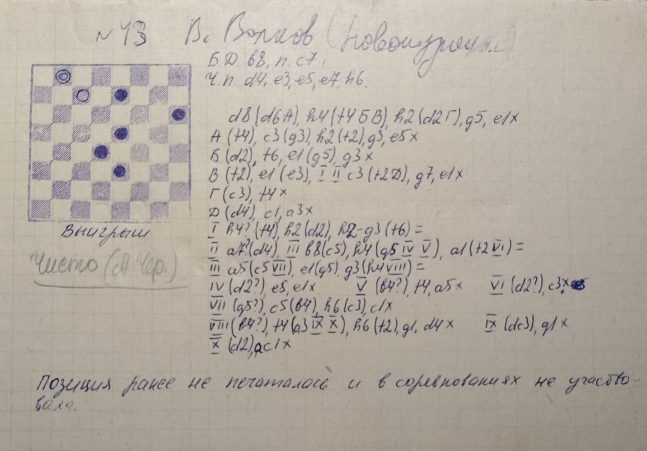 N 13 В. Волков (Новокузнецк)
Б. Д. b8, п. c7,
Ч. п. d4, e3, e5, e7, h6.
d8 (d6A), h4 (f4 Б В), h2 (d2 Г), g5, e1x
А (f4), c3 (g3), h2 (f2), g3, e5x
Б (d2), f6, e1 (g5), g3x
В (f2), e1 (e3), I II c3 (f2 Д), g7, e1x
Г (c3), f4x
Д (d4), c1, a3x
I h4? (f4), h2 (d2), h2-g3 (f6) =
II a7? (d4), III b8 (c5), h4 (g5 IV V), a1 (f2 VI) =
III a5 (c5 VII), e1 (g5), g3 (h4 VIII) =
IV (d2?) e5, e1x V (b4?), f4, a5x VI (d2?), c3x
VII (g5?), c5 (b4), h6 (c3), c1x
VIII (b4?), f4 (a3 IX X), h6 (f2), g1, d4x IX (dc3), g1x
X (d2), c1x
Выигрыш
Чисто
Позиция ранее не печаталась и в соревнованиях не участво-
вала.